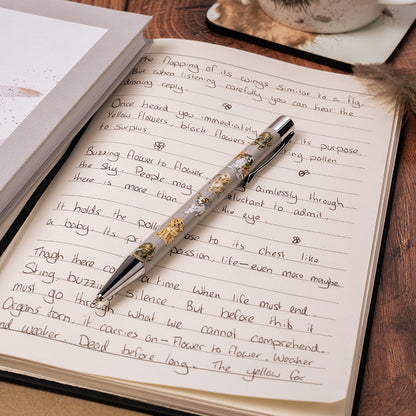 The flapping of its wings similar to a fly,
But when listening carefully you can hear the
droning reply.
Once heard you immediately its purpose.
Yellow flowers, black flowers pollen
to surplus.
Buzzing flower to flower, aimlessly through
the sky. People may reluctant to admit,
there is more than the eye.
It holds the to its chest like
a baby. Its passion, life—even more maybe
Though there a time when life must end.
Sting, silence. But before this it
must go through what we cannot comprehend.
Organs torn, it carries on - Flower to flower. Weaker
and weaker. Dead before long. The yellow for